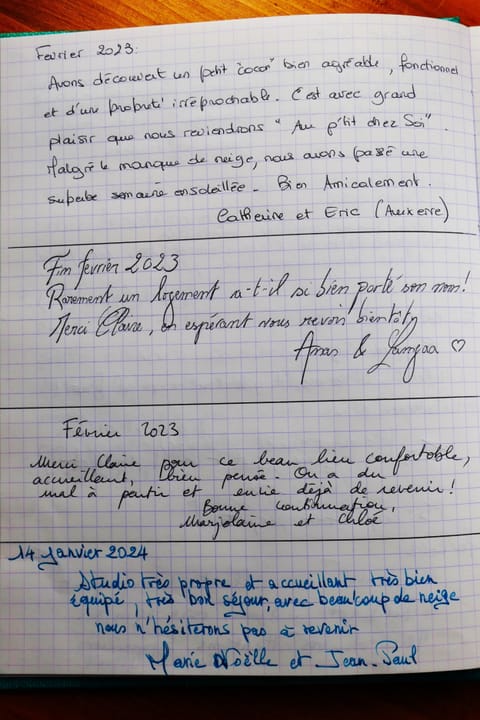 Fevrier 2023:
Avons découvert un petit "cocon" bien agréable, fonctionnel
et d'une propreté irréprochable. C'est avec grand
plaisir que nous reviendrons "Au p'tit chez Soi".
Malgré le manque de neige, nous avons passé une
superbe semaine ensoleillée - Bien Amicalement.
Catherine et Eric (Auxerre)
Fin février 2023
Rarement un logement a-t-il si bien porté son nom!
Merci Claire, en espérant vous revoir bientôt,
Anas &
Février 2023
Merci Claire pour ce beau lieu confortable,
accueillant, bien pensé. On a du
mal à partir et envie déjà de revenir!
Bonne continuation,
Marjolaine et Chloé
14 Janvier 2024
Studio très propre et accueillant très bien
équipé, très bon séjour, avec beaucoup de neige
nous n'hésiterons pas à revenir
Marie Noëlle et Jean-Paul